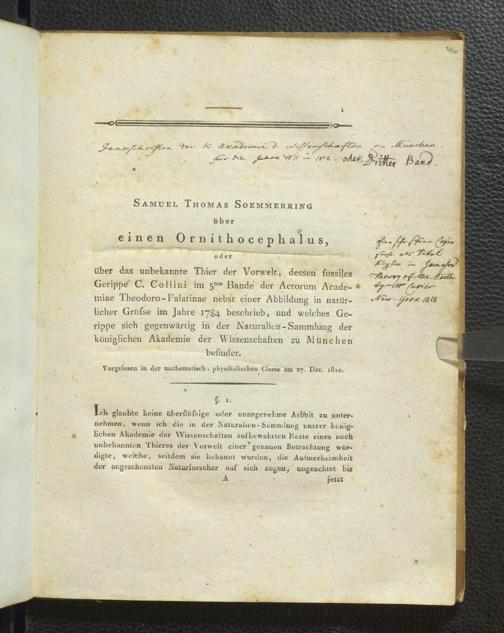 Denkschriften der K. Akademie d. Wissenschaften zu München
für die Jahre 1811 u 1812. oder Dritter Band.
SAMUEL THOMAS SOEMMERRING
über
einen Ornithocephalus,
oder
über das unbekannte Thier der Vorwelt, dessen fossiles
Gerippe C. Collini im 5ten Bande der Actorum Acade-
miae Theodoro-Palatinae nebst einer Abbildung in natür-
licher Gröſse im Jahre 1784 beschrieb, und welches Ge-
rippe sich gegenwärtig in der Naturalien-Sammlung der
königlichen Akademie der Wissenschaften zu München
befindet.
Vorgelesen in der mathematisch-physikalischen Classe am 27. Dec. 1810.
Copia
in
Theory of the Earth
by Mr Cuvier
New-York 1818
§. 1.
Ich glaubte keine überflüſsige oder unangenehme Arbeit zu unter-
nehmen, wenn ich die in der Naturalien-Sammlung unsrer könig-
lichen Akademie der Wissenschaften aufbewahrten Reste eines noch
unbekannten Thieres der Vorwelt einer genauen Betrachtung wür-
digte, welche, seitdem sie bekannt wurden, die Aufmerksamkeit
der angesehensten Naturforscher auf sich zogen, ungeachtet bis
A jetzt